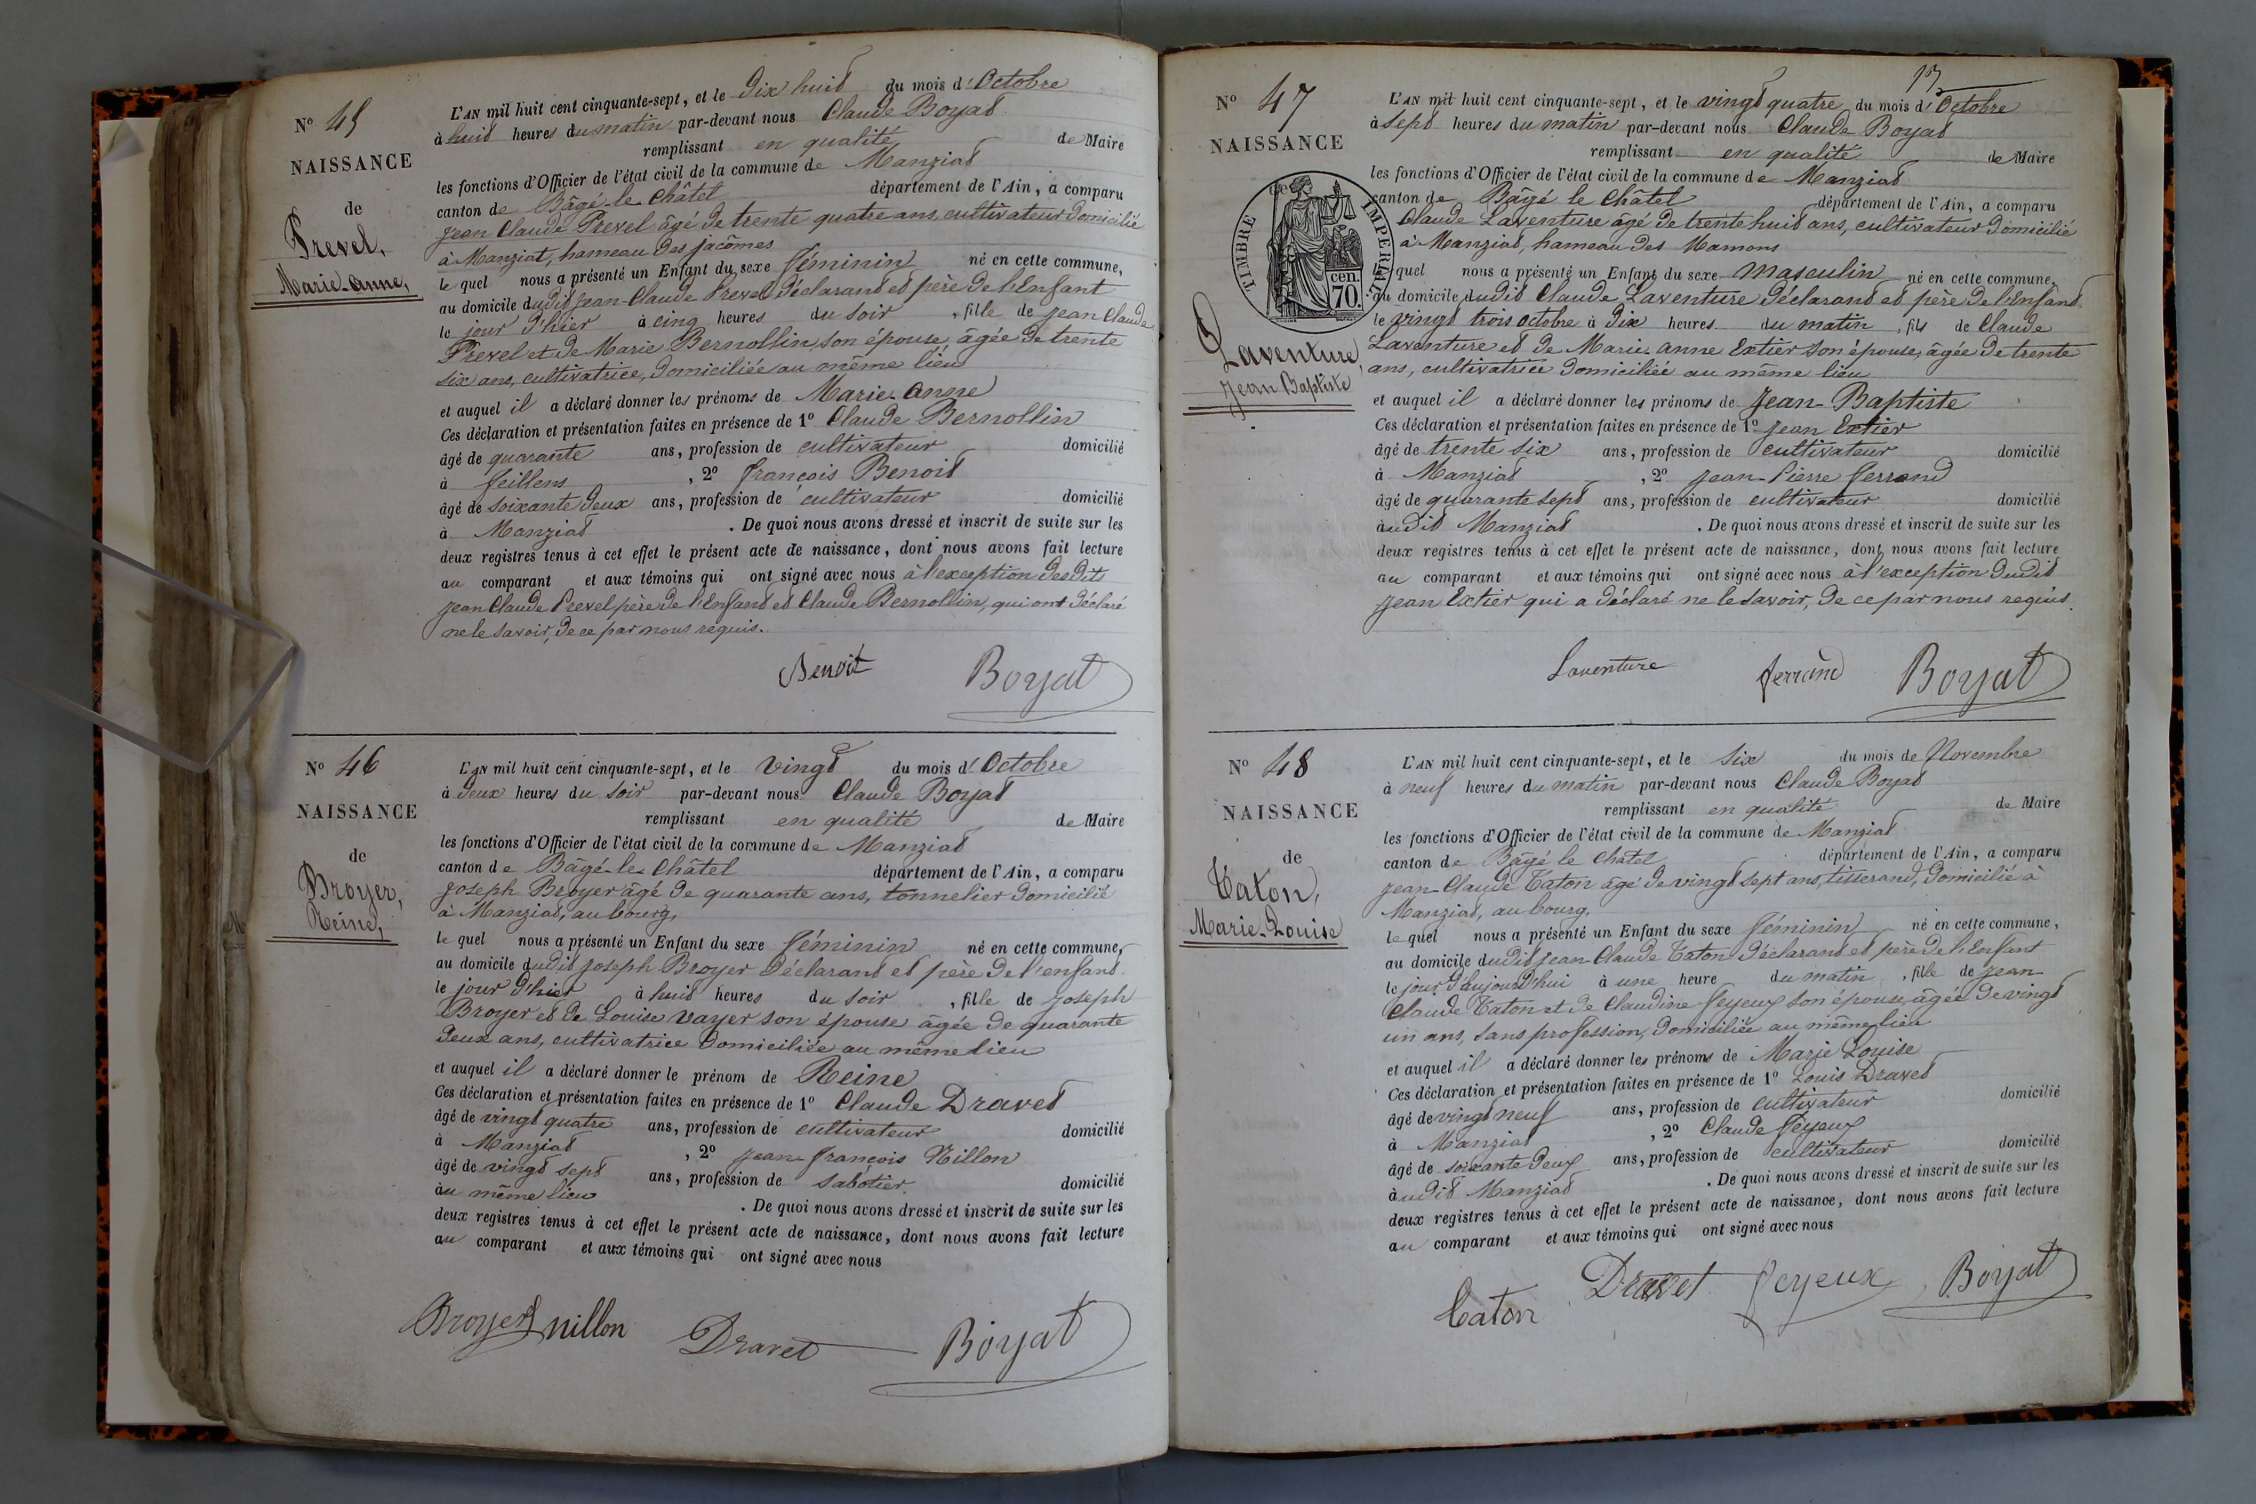 Nº 45
NAISSANCE
de
Prevel,
Marie-Anne,
L'AN mil huit cent cinquante-sept, et le dix huit du mois d'Octobre
à huit heures du matin par-devant nous Claude Boyat
remplissant en qualité de Maire
les fonctions d'Officier de l'état civil de la commune de Manziat
canton de Bâgé-le-Châtel département de l'Ain, a comparu
Jean Claude Prevel âgé de trente quatre ans, cultivateur domicilié
à Manziat, hameau des Jacômes
le quel nous a présenté un Enfant du sexe féminin né en cette commune,
au domicile dudit Jean-Claude Prevel déclarant et père de l'Enfant
le jour d'hier à cinq heures du soir, fille de Jean Claude
Prevel et de Marie Bernollin, son épouse, âgée de trente
six ans, cultivatrice, domiciliée au même lieu
et auquel il a déclaré donner les prénoms de Marie-Anne
Ces déclaration et présentation faites en présence de 1º Claude Bernollin
âgé de quarante ans, profession de cultivateur domicilié
à Feillens, 2º François Benoit
âgé de soixante deux ans, profession de cultivateur domicilié
à Manziat. De quoi nous avons dressé et inscrit de suite sur les
deux registres tenus à cet effet le présent acte de naissance, dont nous avons fait lecture
au comparant et aux témoins qui ont signé avec nous à l'exception desdits
Jean Claude Prevel père de l'Enfant et Claude Bernollin, qui ont déclaré
ne le savoir, de ce par nous requis.
Benoit Boyat
Nº 46
NAISSANCE
de
Broyer,
Reine,
L'AN mil huit cent cinquante-sept, et le vingt du mois d'Octobre
à deux heures du soir par-devant nous Claude Boyat
remplissant en qualité de Maire
les fonctions d'Officier de l'état civil de la commune de Manziat
canton de Bâgé-le-Châtel département de l'Ain, a comparu
Joseph Broyer âgé de quarante ans, tonnelier domicilié
à Manziat, au bourg,
le quel nous a présenté un Enfant du sexe féminin né en cette commune,
au domicile dudit Joseph Broyer déclarant et père de l'enfant
le jour d'hier à huit heures du soir, fille de Joseph
Broyer et de Louise Vayer son épouse âgée de quarante
deux ans, cultivatrice domiciliée au même lieu
et auquel il a déclaré donner le prénom de Reine
Ces déclaration et présentation faites en présence de 1º Claude Dravet
âgé de vingt quatre ans, profession de cultivateur domicilié
à Manziat, 2º Jean-François Nillon
âgé de vingt sept ans, profession de sabotier domicilié
au même lieu. De quoi nous avons dressé et inscrit de suite sur les
deux registres tenus à cet effet le présent acte de naissance, dont nous avons fait lecture
au comparant et aux témoins qui ont signé avec nous
Broyer nillon Dravet Boyat
Nº 47
NAISSANCE
de
TIMBRE IMPERIAL
cen.
70.
Laventure,
Jean Baptiste
L'AN mil huit cent cinquante-sept, et le vingt quatre du mois d'Octobre
à sept heures du matin par-devant nous Claude Boyat
remplissant en qualité de Maire
les fonctions d'Officier de l'état civil de la commune de Manziat
canton de Bâgé le Châtel département de l'Ain, a comparu
Claude Laventure âgé de trente huit ans, cultivateur domicilié
à Manziat, hameau des Mamons
le quel nous a présenté un Enfant du sexe masculin né en cette commune,
au domicile dudit Claude Laventure déclarant et père de l'Enfant
le vingt trois octobre à dix heures du matin, fils de Claude
Laventure et de Marie-Anne Extier son épouse, âgée de trente
ans, cultivatrice domiciliée au même lieu
et auquel il a déclaré donner les prénoms de Jean-Baptiste
Ces déclaration et présentation faites en présence de 1º Jean Extier
âgé de trente six ans, profession de cultivateur domicilié
à Manziat, 2º Jean-Pierre Ferrand
âgé de quarante sept ans, profession de cultivateur domicilié
audit Manziat. De quoi nous avons dressé et inscrit de suite sur les
deux registres tenus à cet effet le présent acte de naissance, dont nous avons fait lecture
au comparant et aux témoins qui ont signé avec nous à l'exception dudit
Jean Extier qui a déclaré ne le savoir, de ce par nous requis.
Laventure ferrand Boyat
Nº 48
NAISSANCE
de
Caton,
Marie-Louise
L'AN mil huit cent cinquante-sept, et le six du mois de Novembre
à neuf heures du matin par-devant nous Claude Boyat
remplissant en qualité de Maire
les fonctions d'Officier de l'état civil de la commune de Manziat
canton de Bâgé le Châtel département de l'Ain, a comparu
Jean-Claude Caton âgé de vingt sept ans, tisserand, domicilié à
Manziat, au bourg,
le quel nous a présenté un Enfant du sexe féminin né en cette commune,
au domicile dudit Jean Claude Caton déclarant et père de l'Enfant
le jour d'aujourd'hui à une heure du matin, fille de Jean
Claude Caton et de Claudine Feyeux son épouse, âgée de vingt
un ans, sans profession, domiciliée au même lieu
et auquel il a déclaré donner les prénoms de Marie Louise
Ces déclaration et présentation faites en présence de 1º Louis Dravet
âgé de vingt neuf ans, profession de cultivateur domicilié
à Manziat, 2º Claude Feyeux
âgé de soixante deux ans, profession de cultivateur domicilié
audit Manziat. De quoi nous avons dressé et inscrit de suite sur les
deux registres tenus à cet effet le présent acte de naissance, dont nous avons fait lecture
au comparant et aux témoins qui ont signé avec nous
Caton Dravet feyeux Boyat